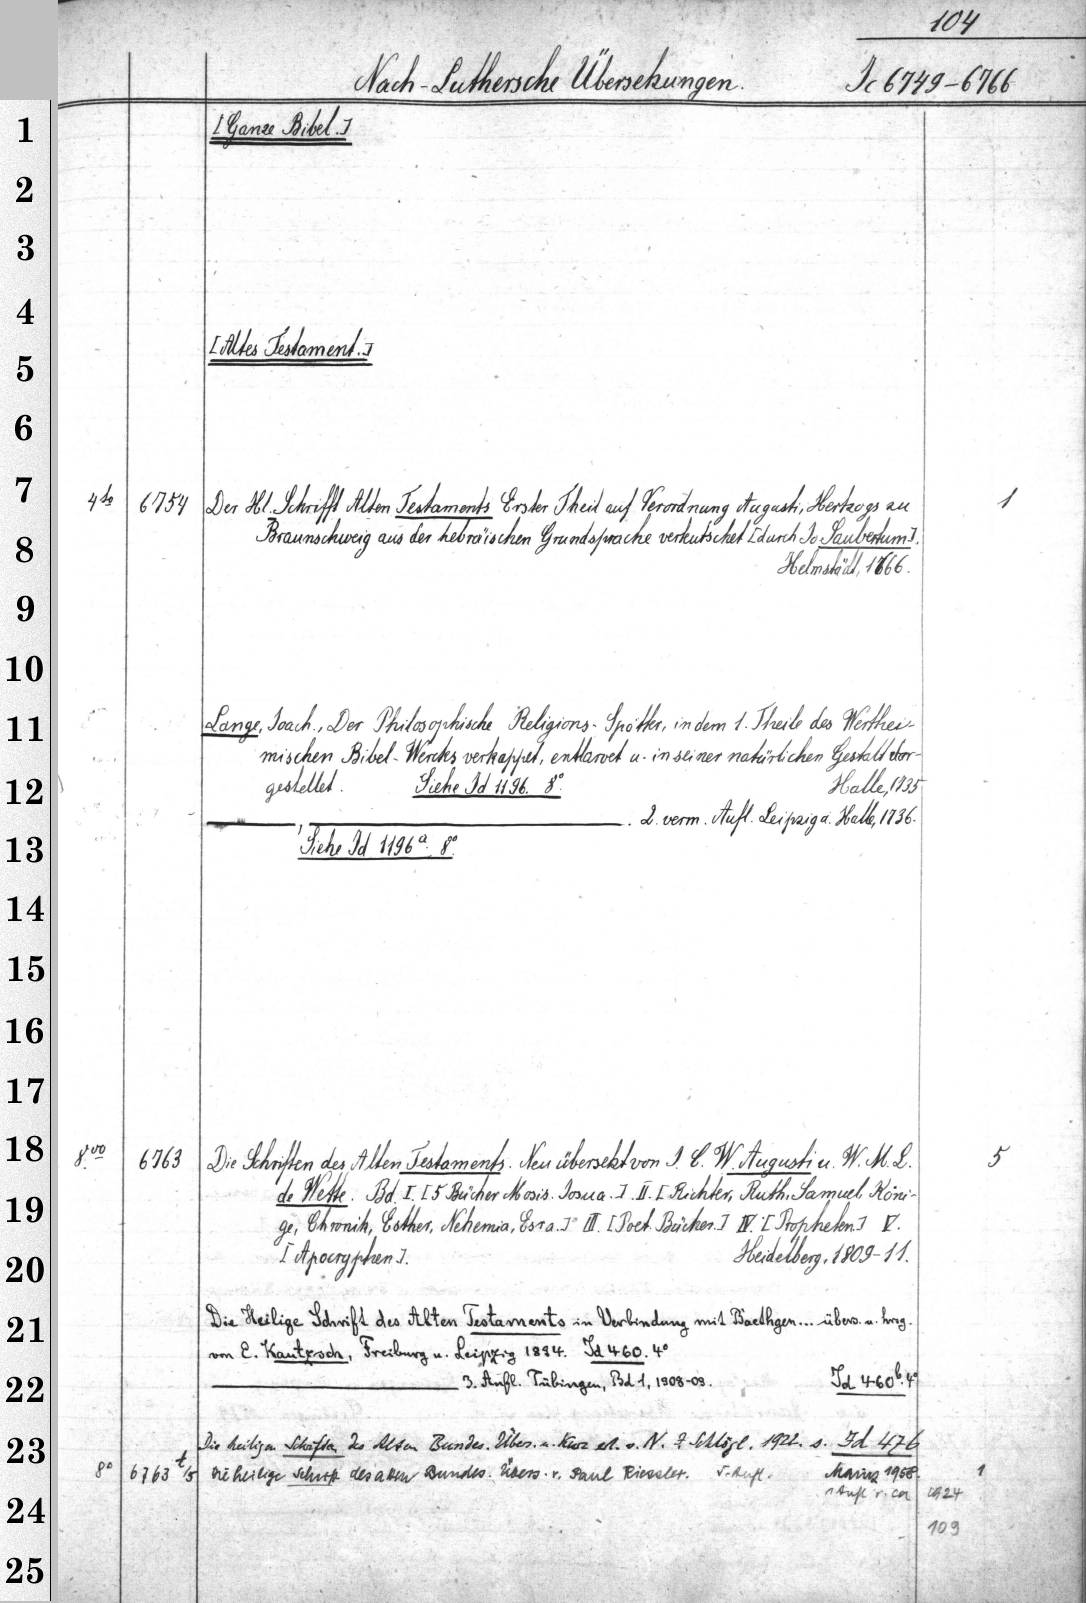 104
Nach-Luthersche Übersetzungen. Ic 6749-6766
1 [Ganze Bibel.]
2
3
4
[Altes Testament.]
5
6
7 4to 6754 Der Hl. Schrifft Alten Testaments Erster Theil auf Verordnung Augusti, Hertzogs zu 1
8 Braunschweig aus der hebräischen Grundsprache verteutschet [durch Jo Saubertum].
Helmstädt, 1666.
9
10
11 Lange, Joach., Der Philosophische Religions-Spötter, in dem 1. Theile des Werthei-
mischen Bibel-Wercks verkappet, entlarvet u. in seiner natürlichen Gestalt dar-
12 gestellet. Siehe Id 1196. 8°. Halle, 1735
, . 2. verm. Aufl. Leipzig u. Halle, 1736.
13 Siehe Id 1196a. 8°.
14
15
16
17
18 8.vo 6763 Die Schriften des Alten Testaments. Neu übersetzt von J. C. W. Augusti u. W. M. L. 5
19 de Wette. Bd. I. [5 Bücher Mosis. Josua.] II. [Richter, Ruth, Samuel, Köni-
ge, Chronik, Esther, Nehemia, Esra.] III. [Poet. Bücher.] IV. [Propheten.] V.
20 [Apocryphen]. Heidelberg, 1809-11.
21 Die Heilige Schrift des Alten Testaments in Verbindung mit Baethgen... übers. u. hrsg.
von E. Kautzsch, Freiburg u. Leipzig 1894. Id 460. 4°
22 3. Aufl. Tübingen, Bd 1, 1908-09. Id 460b. 4°
23 Die heiligen Schriften des Alten Bundes. Übers. u. kurz erl. v. N. J. Schlögl. 1922. s. Id 476
8° 6763 t/5 Die heilige Schrift des alten Bundes. Übers. v. Paul Riessler. Aufl. Mainz 1958. 1
24 Aufl 1924
109
25